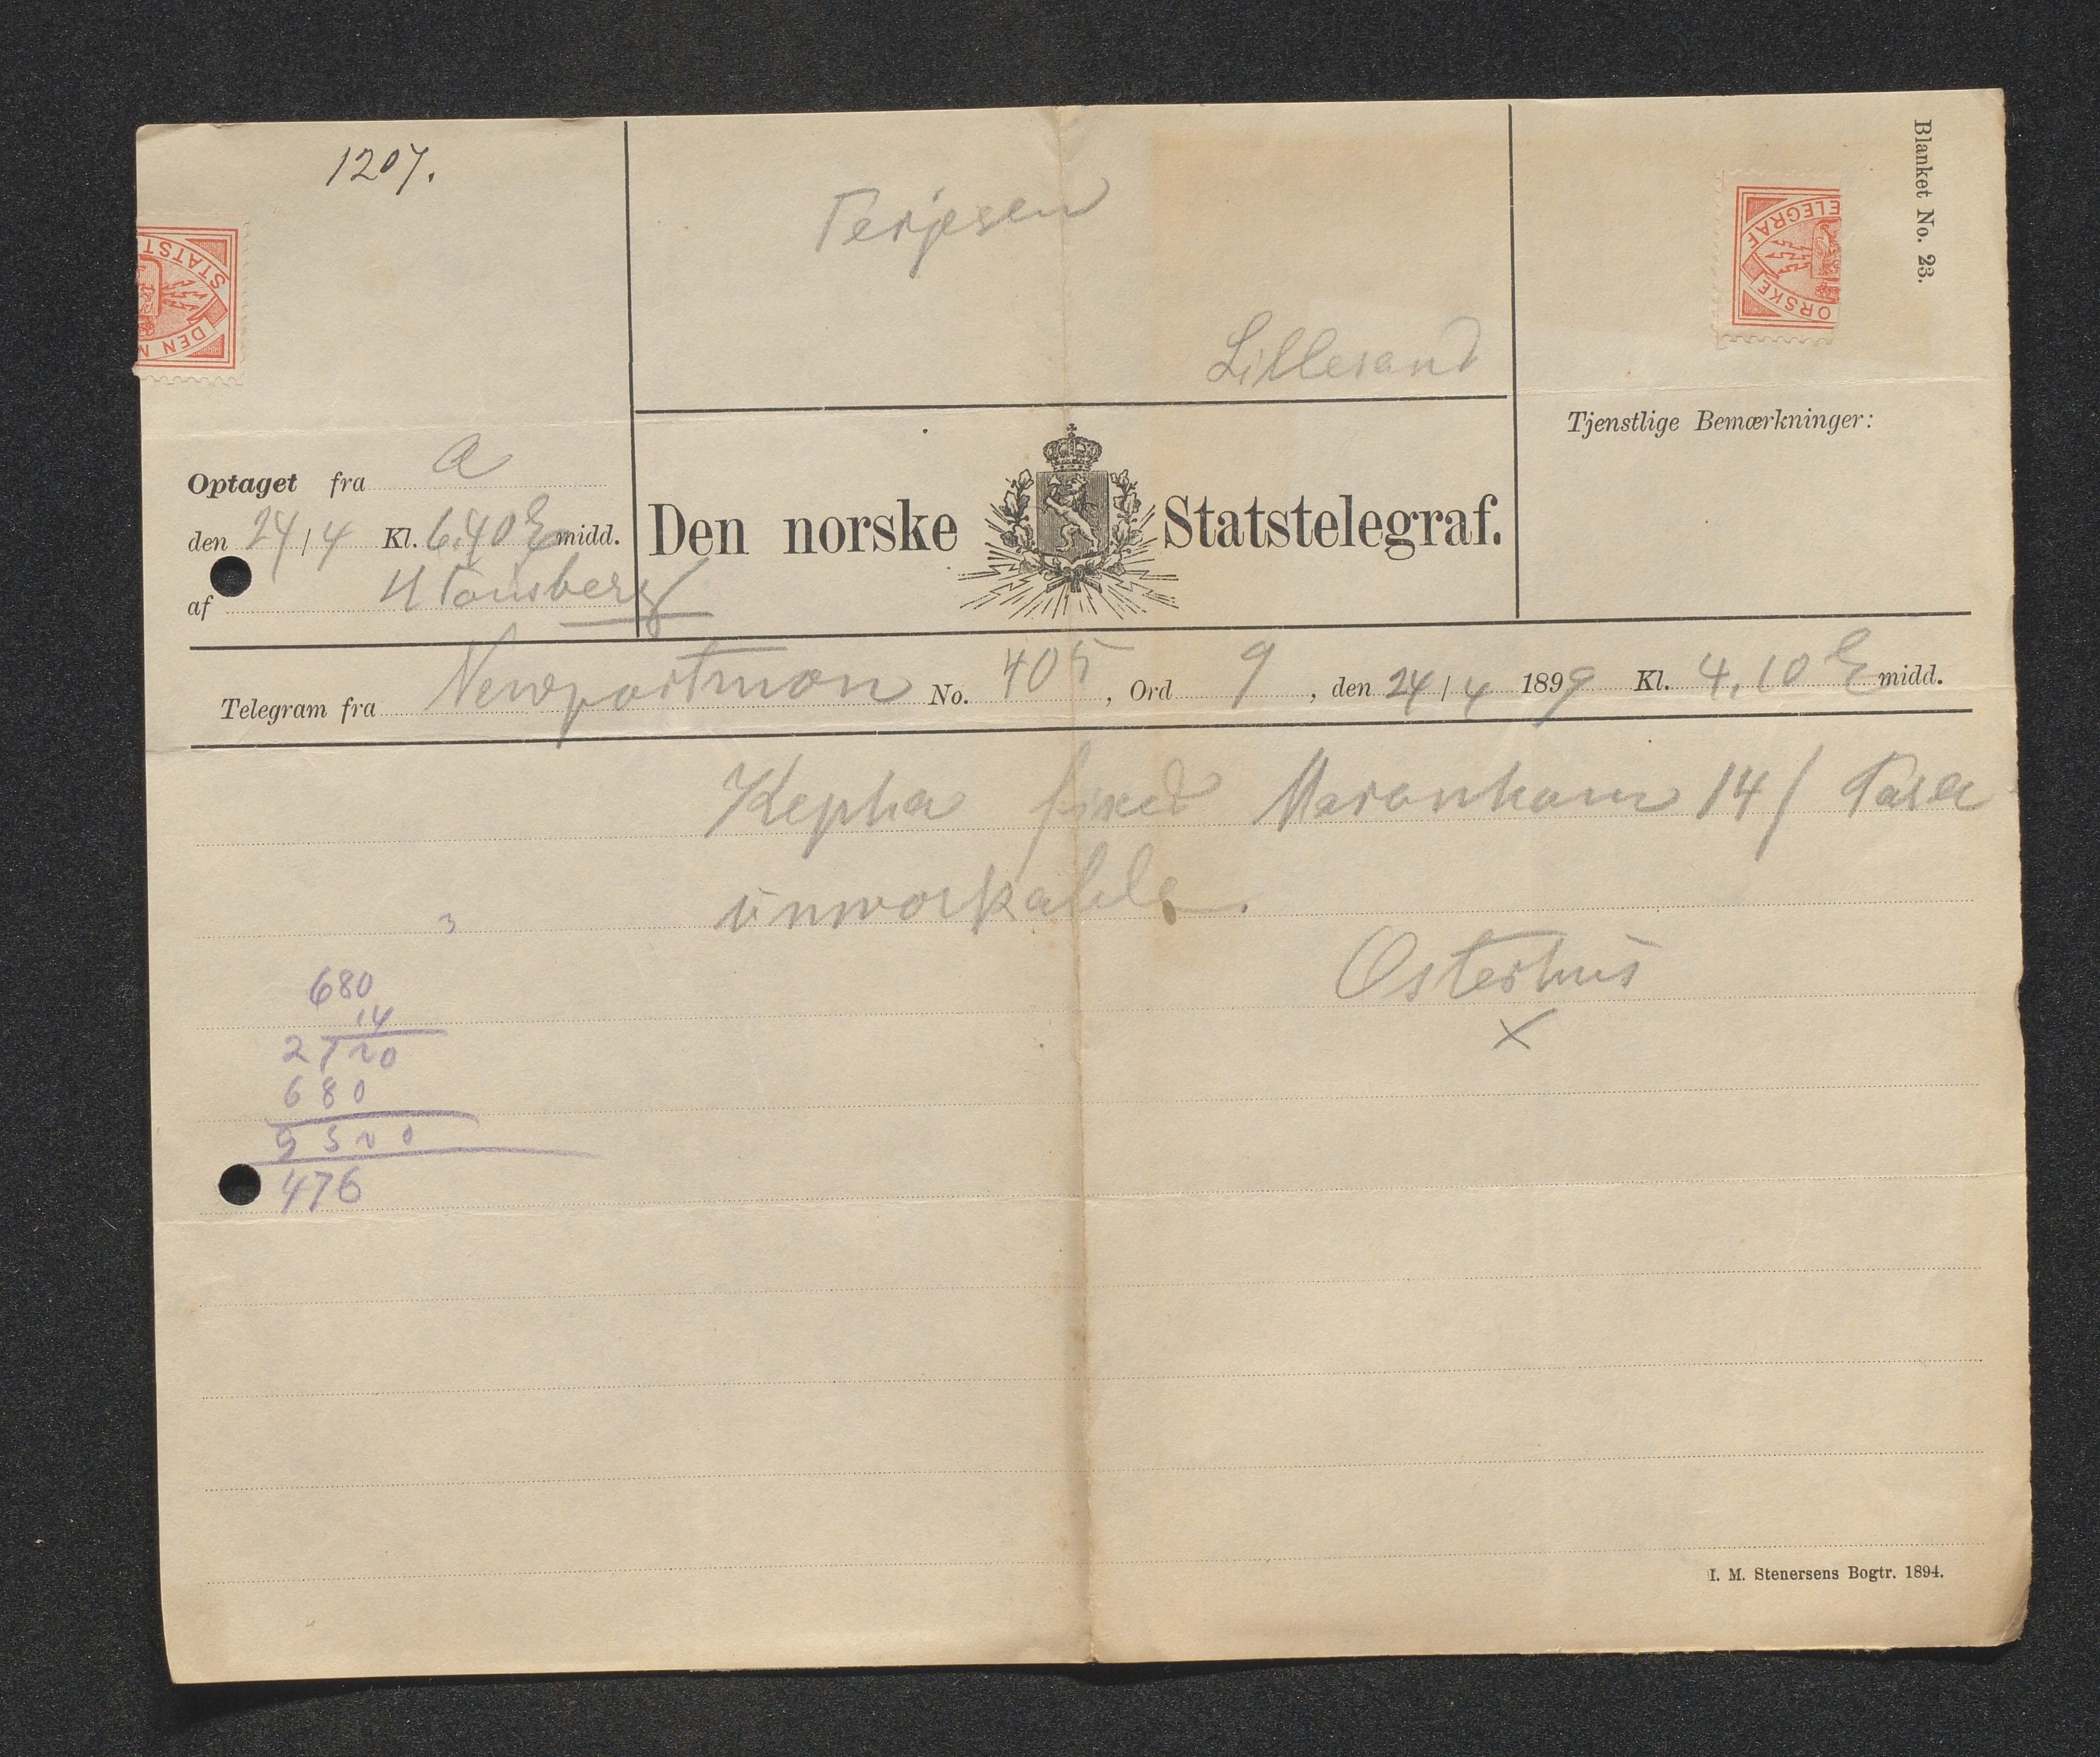 1207.
Terjesen
Lillesand
Blanket No. 23.
STATST
DEN N
ELEGRAF
ORSKE
Tjenstlige Bemærkninger:
Optaget fra a
den 24/4 Kl. 6.40 E midd.
af
Den norske Statstelegraf.
Telegram fra Newportmon No. 405, Ord 9, den 24/4 1899 Kl. 4.10 E midd.
Kepha fixed Maranham 14/ Para
unworkable.
Osterhus
x
3
680
14
2720
680
9520
476
I. M. Stenersens Bogtr. 1894.